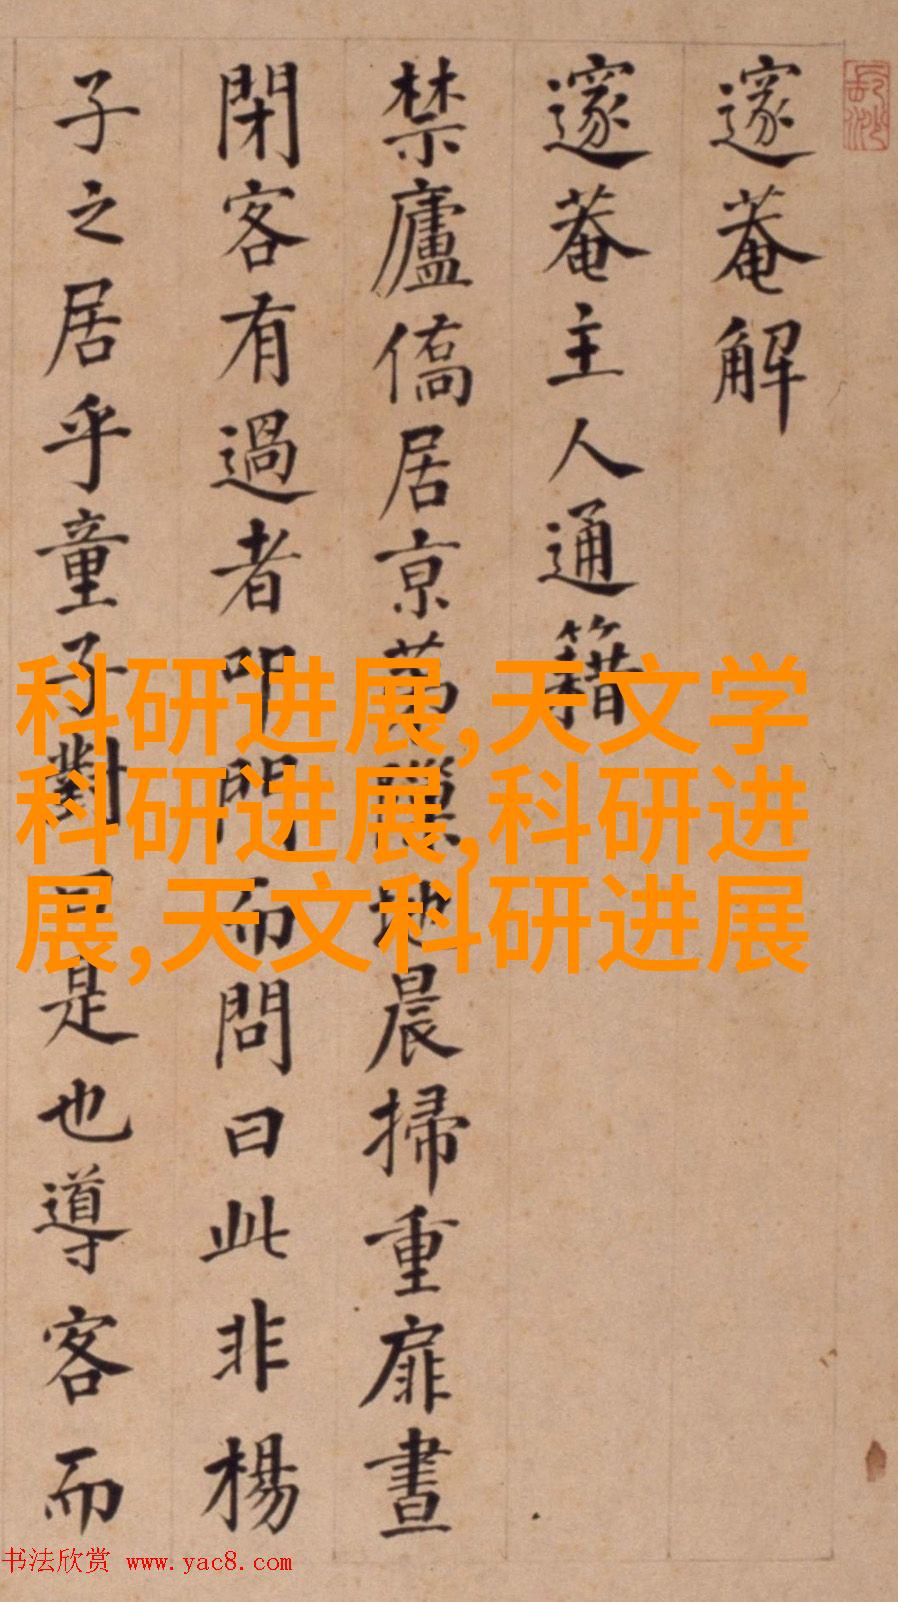 邃菴解
邃菴主人通籍
禁廬僑居京苐
地晨掃重扉晝
閉客有過者叩門而問曰此非楊
子之居乎童子對曰是也導客而
科研进展,天文学
科研进展,科研进
展,天文科研进展
书法欣赏 www.yac8.com